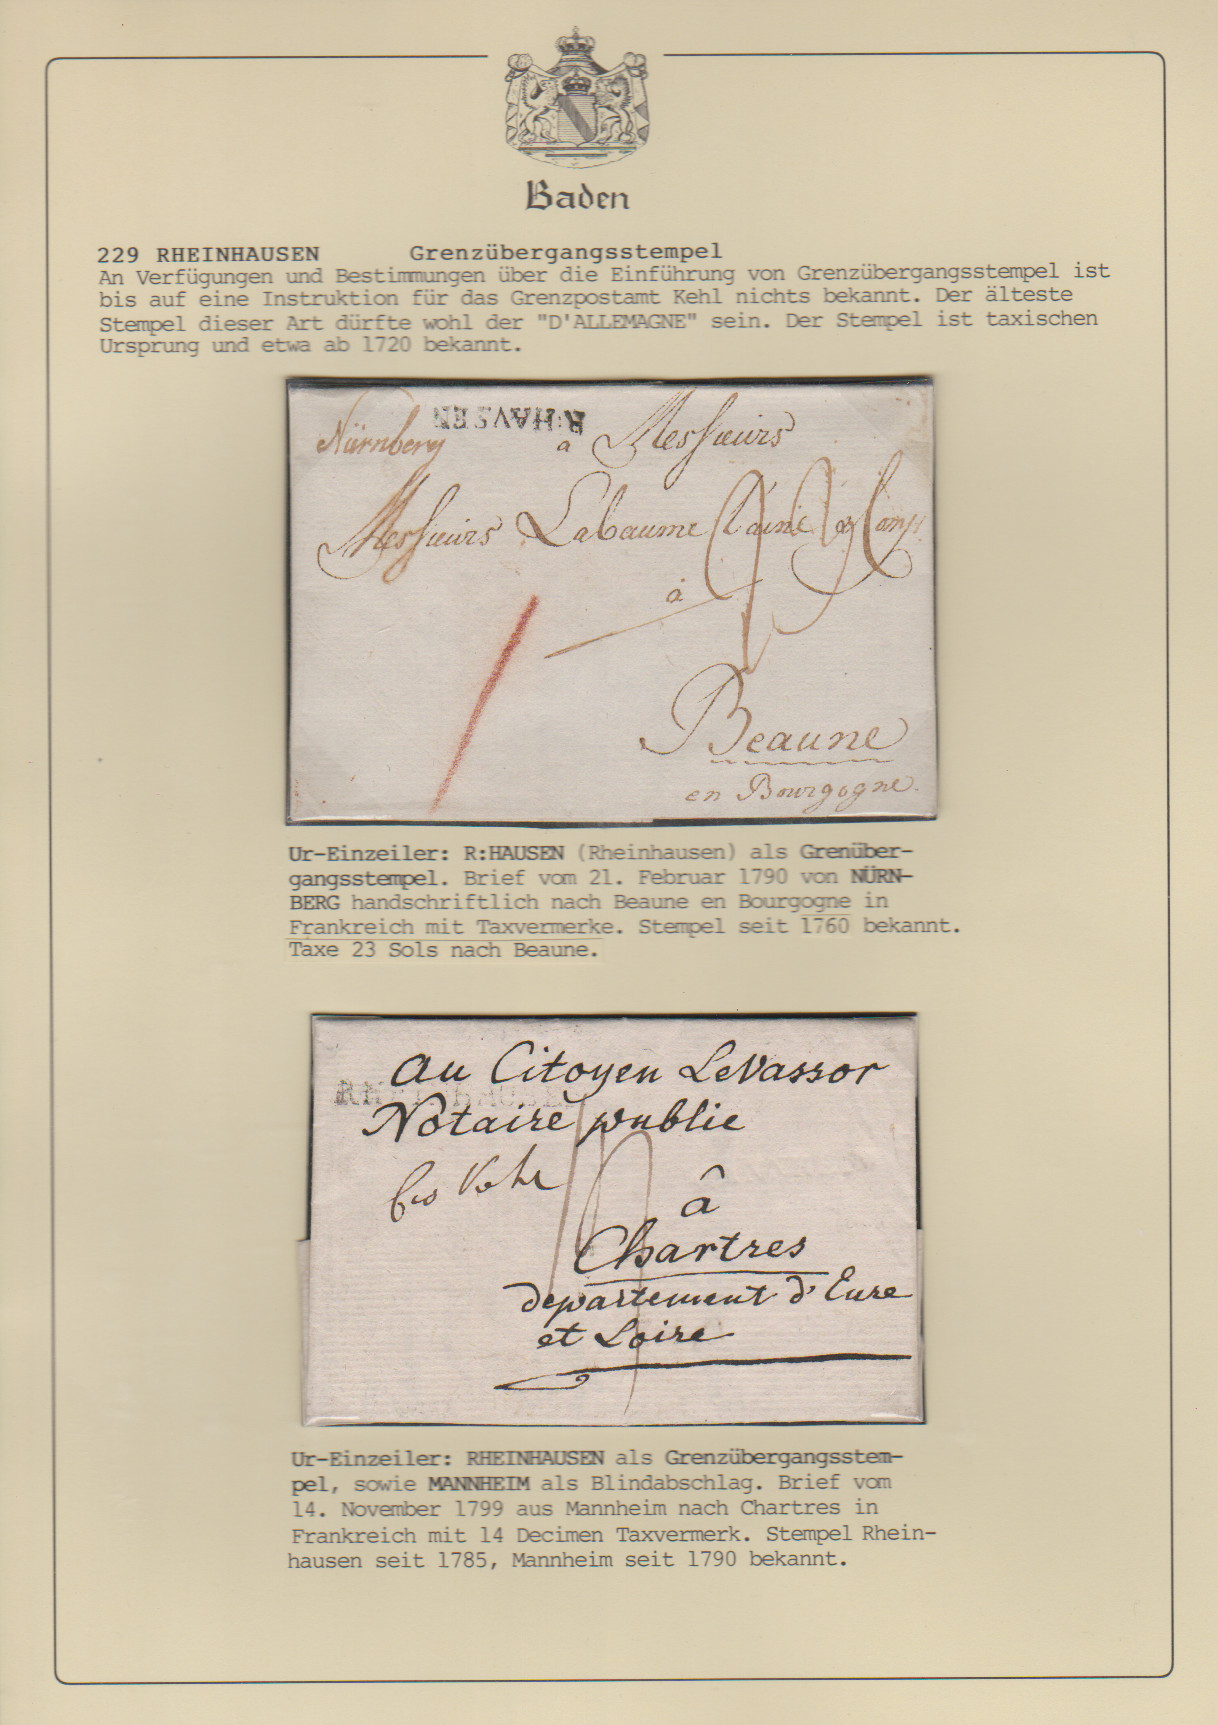 Baden
229 RHEINHAUSEN Grenzübergangsstempel
An Verfügungen und Bestimmungen über die Einführung von Grenzübergangsstempel ist
bis auf eine Instruktion für das Grenzpostamt Kehl nichts bekannt. Der älteste
Stempel dieser Art dürfte wohl der "D'ALLEMAGNE" sein. Der Stempel ist taxischen
Ursprung und etwa ab 1720 bekannt.
R:HAVSEN
Nürnberg a Messieurs
Messieurs Labaume l'ainé & Comp
à
Beaune
en Bourgogne.
Ur-Einzeiler: R:HAUSEN (Rheinhausen) als Grenüber-
gangsstempel. Brief vom 21. Februar 1790 von NÜRN-
BERG handschriftlich nach Beaune en Bourgogne in
Frankreich mit Taxvermerke. Stempel seit 1760 bekannt.
Taxe 23 Sols nach Beaune.
au Citoyen LeVassor
RHEINHAUSEN
Notaire publie
â
Chartres
departement d'Eure
et Loire
Ur-Einzeiler: RHEINHAUSEN als Grenzübergangsstem-
pel, sowie MANNHEIM als Blindabschlag. Brief vom
14. November 1799 aus Mannheim nach Chartres in
Frankreich mit 14 Decimen Taxvermerk. Stempel Rhein-
hausen seit 1785, Mannheim seit 1790 bekannt.